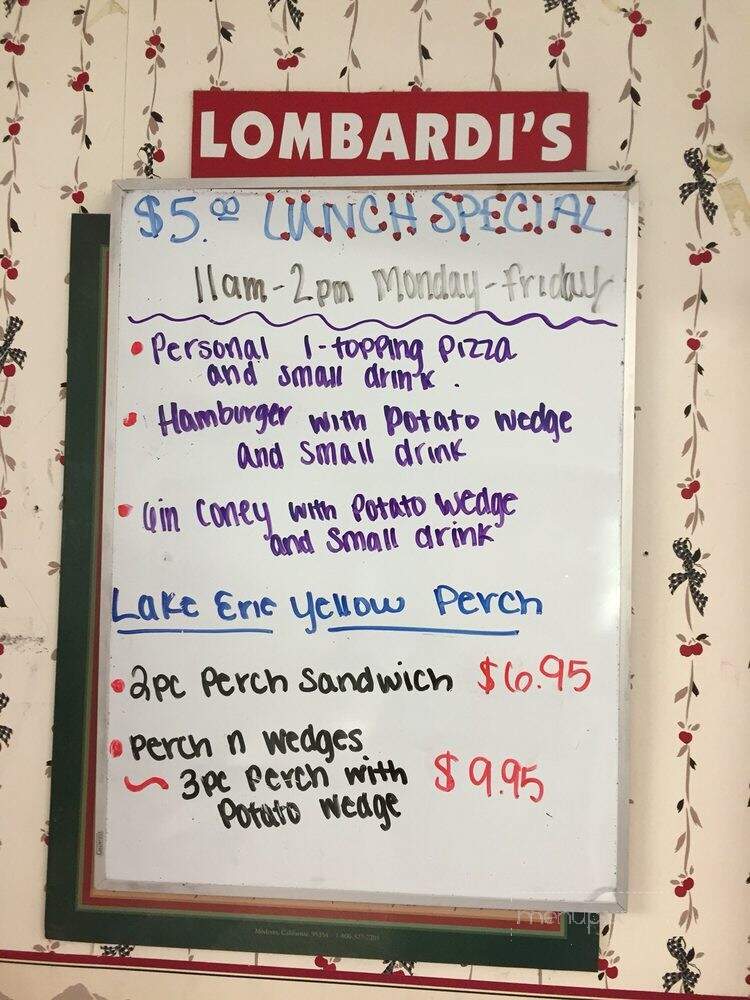 LOMBARDI'S
$5.00 LUNCH SPECIAL
11am-2pm Monday-friday
• Personal 1-topping pizza
and small drink.
• Hamburger with potato wedge
and small drink
• 6in Coney with Potato wedge
and small drink
Lake Erie Yellow Perch
• 2pc Perch Sandwich $6.95
• Perch n wedges
~ 3pc Perch with $9.95
Potato wedge
Modesto, California, 95354
menup